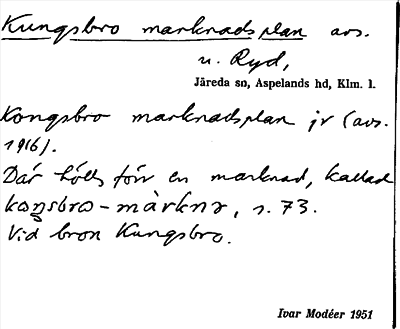 Kungsbro marknadsplan avs.
u. Ryd,
Järeda sn, Aspelands hd, Klm. l.
Kongsbro marknadsplan jr (avs.
1916).
Där hölls förr en marknad, kallad
koŋsbro-màrknɂ, s. 73.
Vid bron Kungsbro.
Ivar Modéer 1951